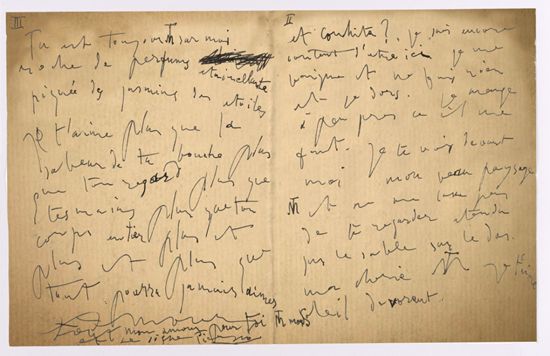 III
Tu est toujours MT sur moi
roche de perfums
etincellante
piquée de jasmins des etoiles
Je t'aime plus que la
saveur de ta bouche plus
que ton regard plus que
tes mains plus que ton
corps entier plus et
plus et plus et plus que
tout pourra jamais aimer
mon amour pour toi MT
et te signe Picasso
II
et Conchita? je suis encore
content d'etre ici je me
baigne et ne fais rien
et je dors. Je mange
à peu pres ce il me
faut. Je te vois devant
moi mon beau paysage
MT et ne me lasse pas
de te regarder etendu
sur le sable sur le dos.
ma cherie MT je t'aime
soleil devorant.